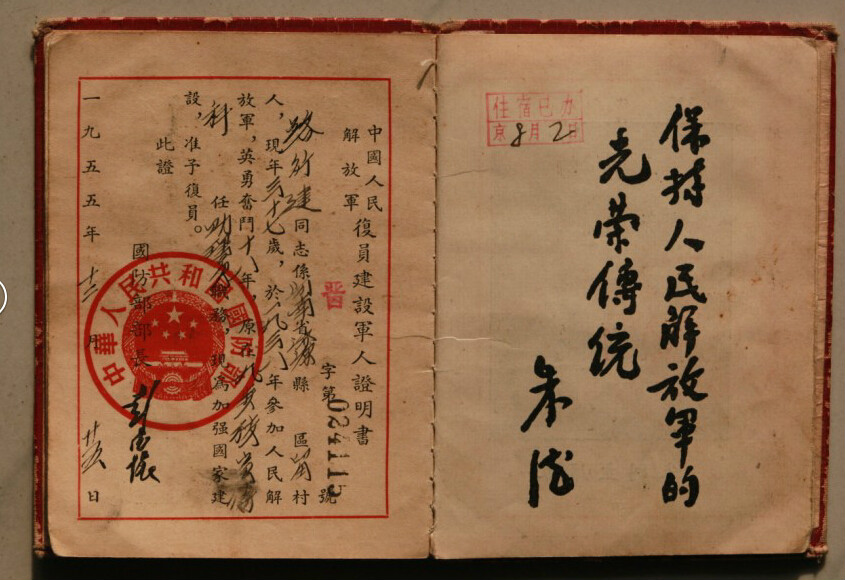 保持人民解放軍的
光荣傳统
朱德
住宿已办
京8月2日
中國人民
解放軍
復員建設軍人證明書
晋字第號
同志係省縣區村
人，現年三十七歲，於一九三八年參加人民解
放軍，英勇奮鬥十八年，原在
科任助理員職務，現為加强國家建
設，准予復員。
此證
國防部部長 彭德懷
中華人民共和國國防部
一九五五年十二月廿五日